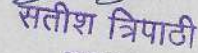 सतीश त्रिपाठी